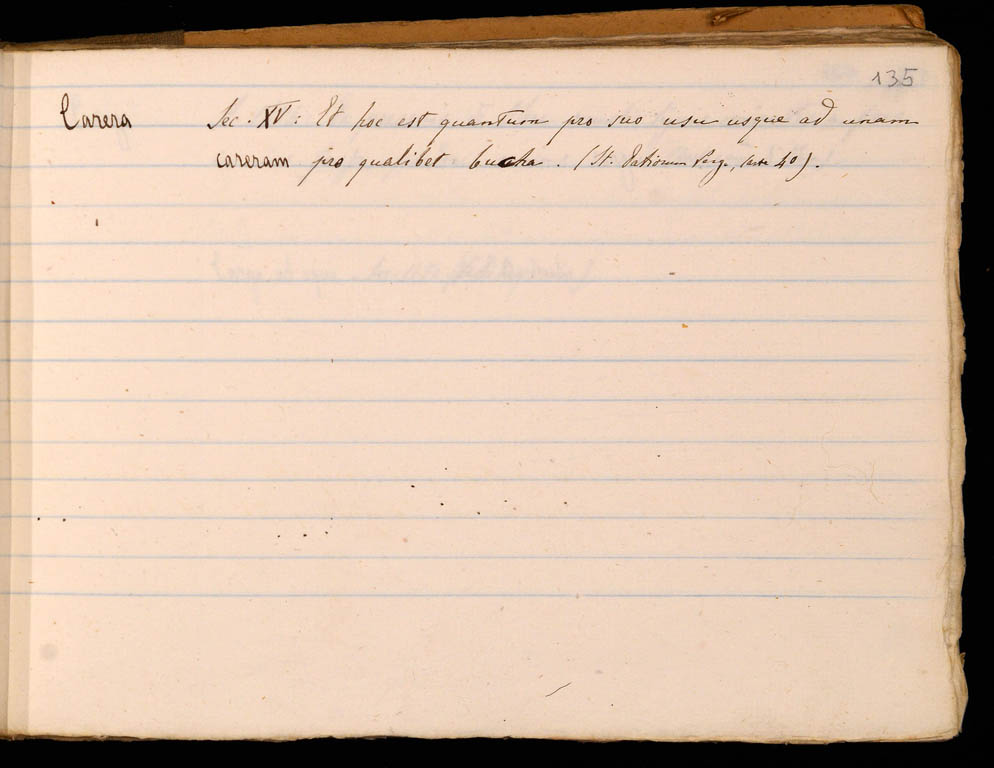 135
Carera Sec. XV: Et hoc est quantum pro suo usu usque ad unam
careram pro qualibet bucha. (St. Dationum 40).